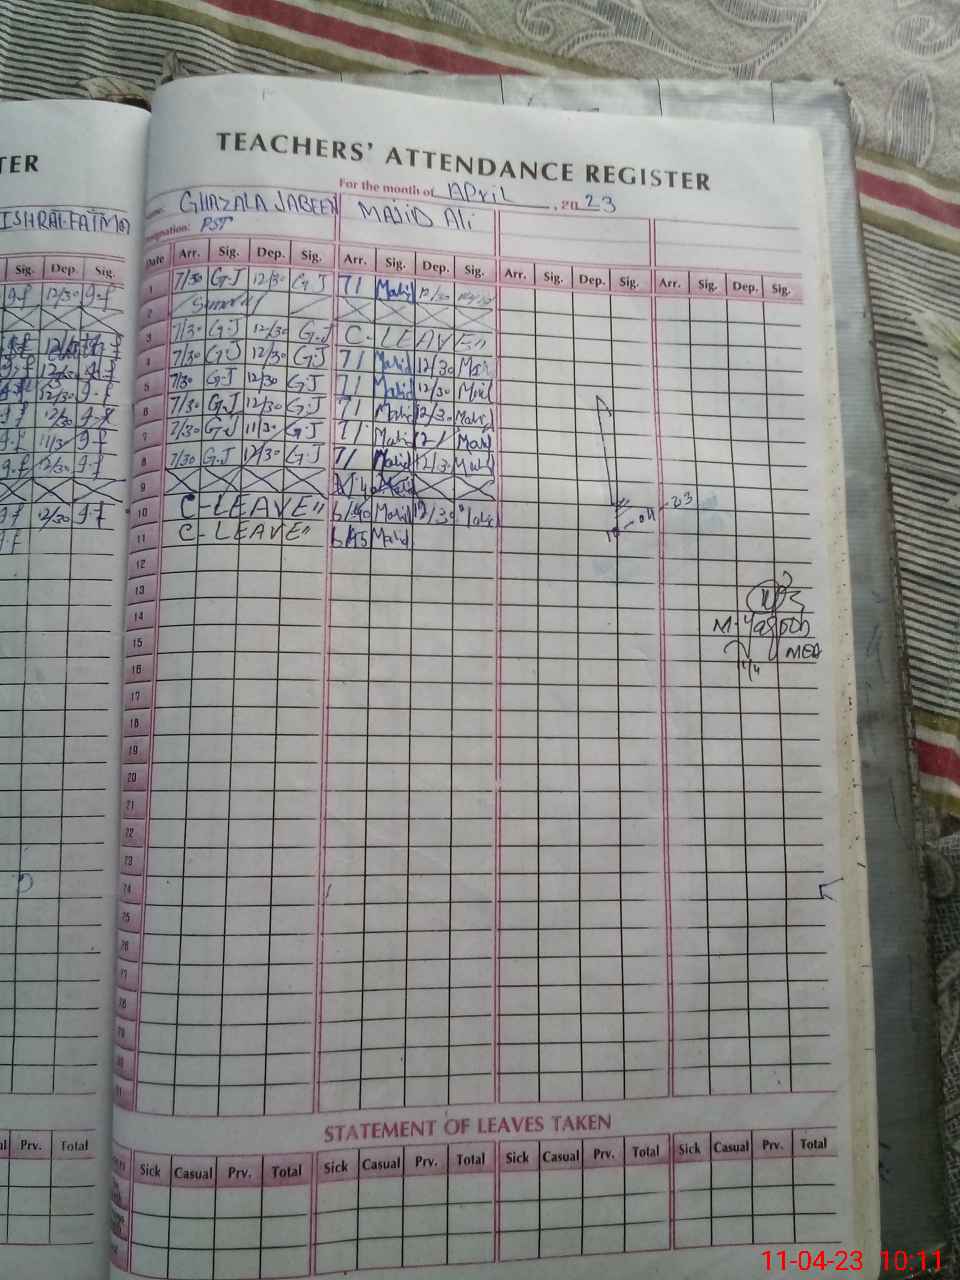 TER
TEACHERS' ATTENDANCE REGISTER
For the month of April, 2023
GHAZALA JABEEN MAJID Ali
ISHRAT FATMA
Designation: PST
Sig. Dep. Sig. Date Arr. Sig. Dep. Sig. Arr. Sig. Dep. Sig. Arr. Sig. Dep. Sig. Arr. Sig. Dep. Sig.
g.f 12/30 g.f 1 7/30 G.J 12/30 G.J 7/ Majid 12/30
2 Sunday
3 7/30 G.J 12/30 G.J C-LEAVE"
12/30 g.f 4 7/30 G.J 12/30 G.J 7/ Majid 12/30
12/30 g.f 5 7/30 G.J 12/30 G.J 7/ Majid 12/30
g.f 12/30 g.f 6 7/30 G.J 12/30 G.J 7/ Majid 12/30 Majid
g.f 11/30 g.f 7 7/30 G.J 11/30 G.J 7/ Majid 12/ Majid
g.f 12/30 g.f 8 7/30 G.J 12/30 G.J 7/ Majid 12/30 Majid
9
g.f 12/30 g.f 10 C-LEAVE" 6/40 Majid 12/30
g.f 11 C-LEAVE" 6/45 Majid
10-04-23
12
13
14
M. Yaqoob
15
MEA
16
17
18
19
20
21
22
23
24
25
26
27
28
29
30
31
STATEMENT OF LEAVES TAKEN
Prv. Total Sick Casual Prv. Total Sick Casual Prv. Total Sick Casual Prv. Total Sick Casual Prv. Total
11-04-23 10:11